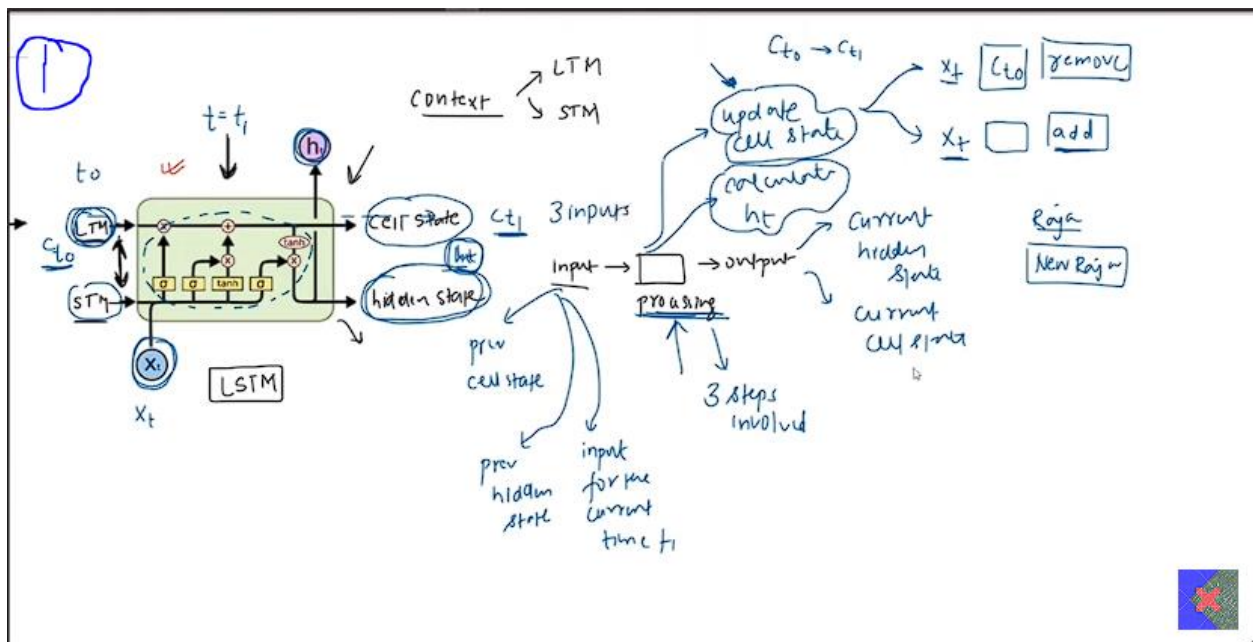 1
t = t1
t0
LTM
Ct0
STM
σ
σ
tanh
σ
tanh
Xt
Xt
LSTM
ht
context
LTM
STM
cell state
Ct1
hidden state
3 inputs
input → → output
processing
prev
cell state
prev
hidden
state
input
for the
current
time t1
3 steps
involved
Ct0 → Ct1
update
cell state
calculate
ht
Xt Ct0 remove
Xt add
current
hidden
state
current
cell state
Raja
New Raja